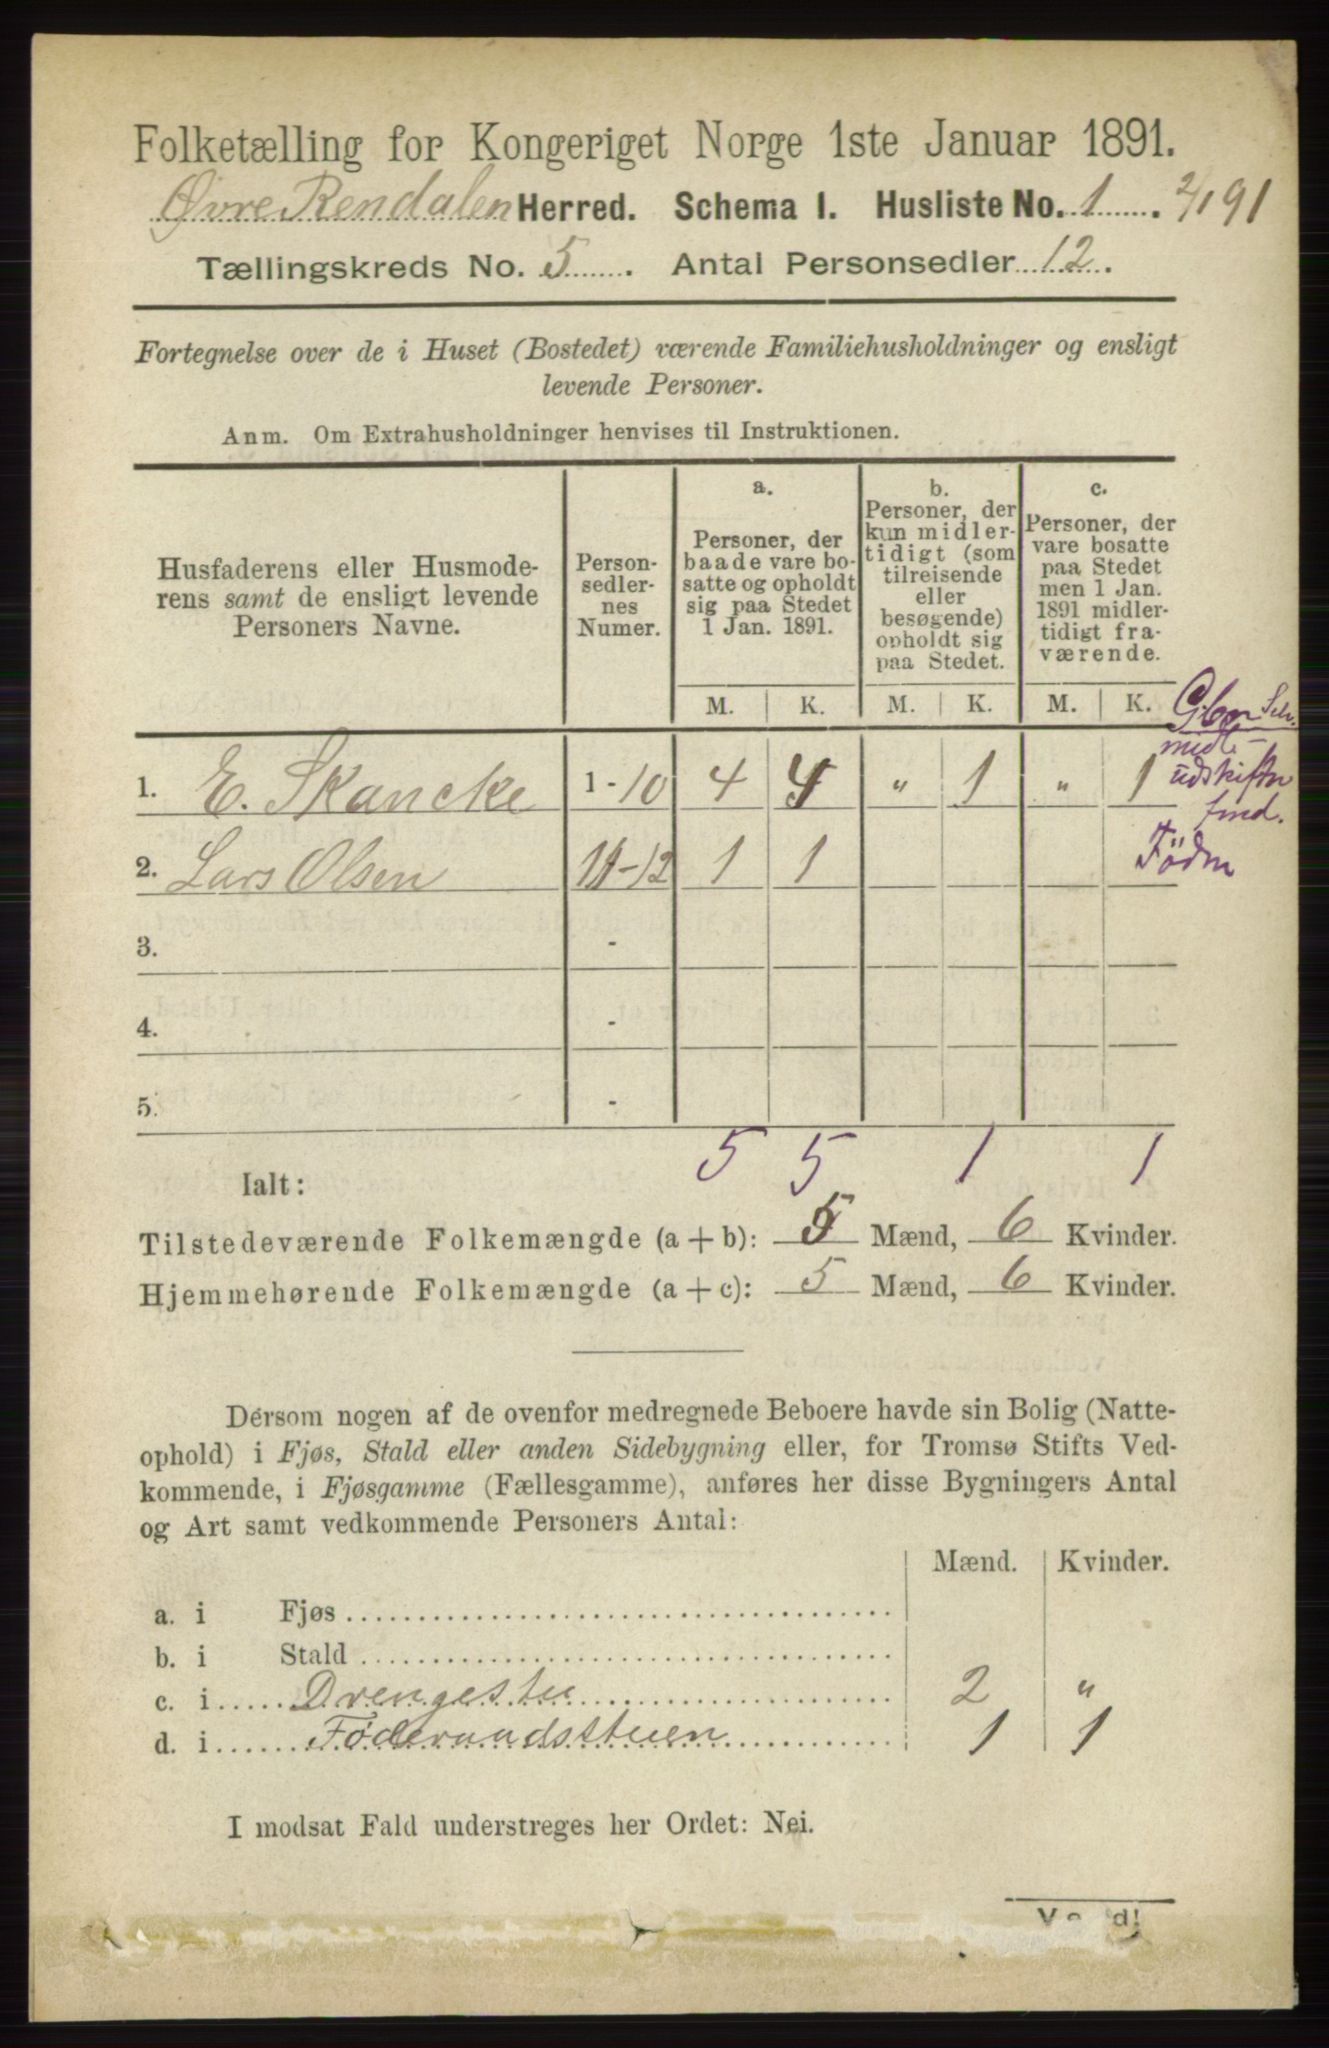 Folketælling for Kongeriget Norge 1ste Januar 1891.
Øvre Rendalen Herred. Schema I. Husliste No. 1. 2/1 91
Tællingskreds No. 5. Antal Personsedler 12.
Fortegnelse over de i Huset (Bostedet) værende Familiehusholdninger og ensligt
levende Personer.
Anm. Om Extrahusholdninger henvises til Instruktionen.
Husfaderens eller Husmode-
rens samt de ensligt levende
Personers Navne.
Person-
sedler-
nes
Numer.
a.
Personer, der
baade vare bo-
satte og opholdt
sig paa Stedet
1 Jan. 1891.
b.
Personer, der
kun midler-
tidigt (som
tilreisende
eller
besøgende)
opholdt sig
paa Stedet.
c.
Personer, der
vare bosatte
paa Stedet
men 1 Jan.
1891 midler-
tidigt fra-
værende.
M. K. M. K. M. K.
Gbr Selv.
midl-
udskiftn
fmd.
1. E. Skancke 1-10 4 4 " 1 " 1
Föd
2. Lars Olsen 11-12 1 1
3. -
4. -
5. -
5 5 1 1
Ialt:
Tilstedeværende Folkemængde (a + b): 5 Mænd, 6 Kvinder.
Hjemmehørende Folkemængde (a + c): 5 Mænd, 6 Kvinder.
Dersom nogen af de ovenfor medregnede Beboere havde sin Bolig (Natte-
ophold) i Fjøs, Stald eller anden Sidebygning eller, for Tromsø Stifts Ved-
kommende, i Fjøsgamme (Fællesgamme), anføres her disse Bygningers Antal
og Art samt vedkommende Personers Antal:
Mænd. Kvinder.
a. i Fjøs
b. i Stald
c. i Drengestue 2 "
d. i Føderaadsstuen 1 1
I modsat Fald understreges her Ordet: Nei.